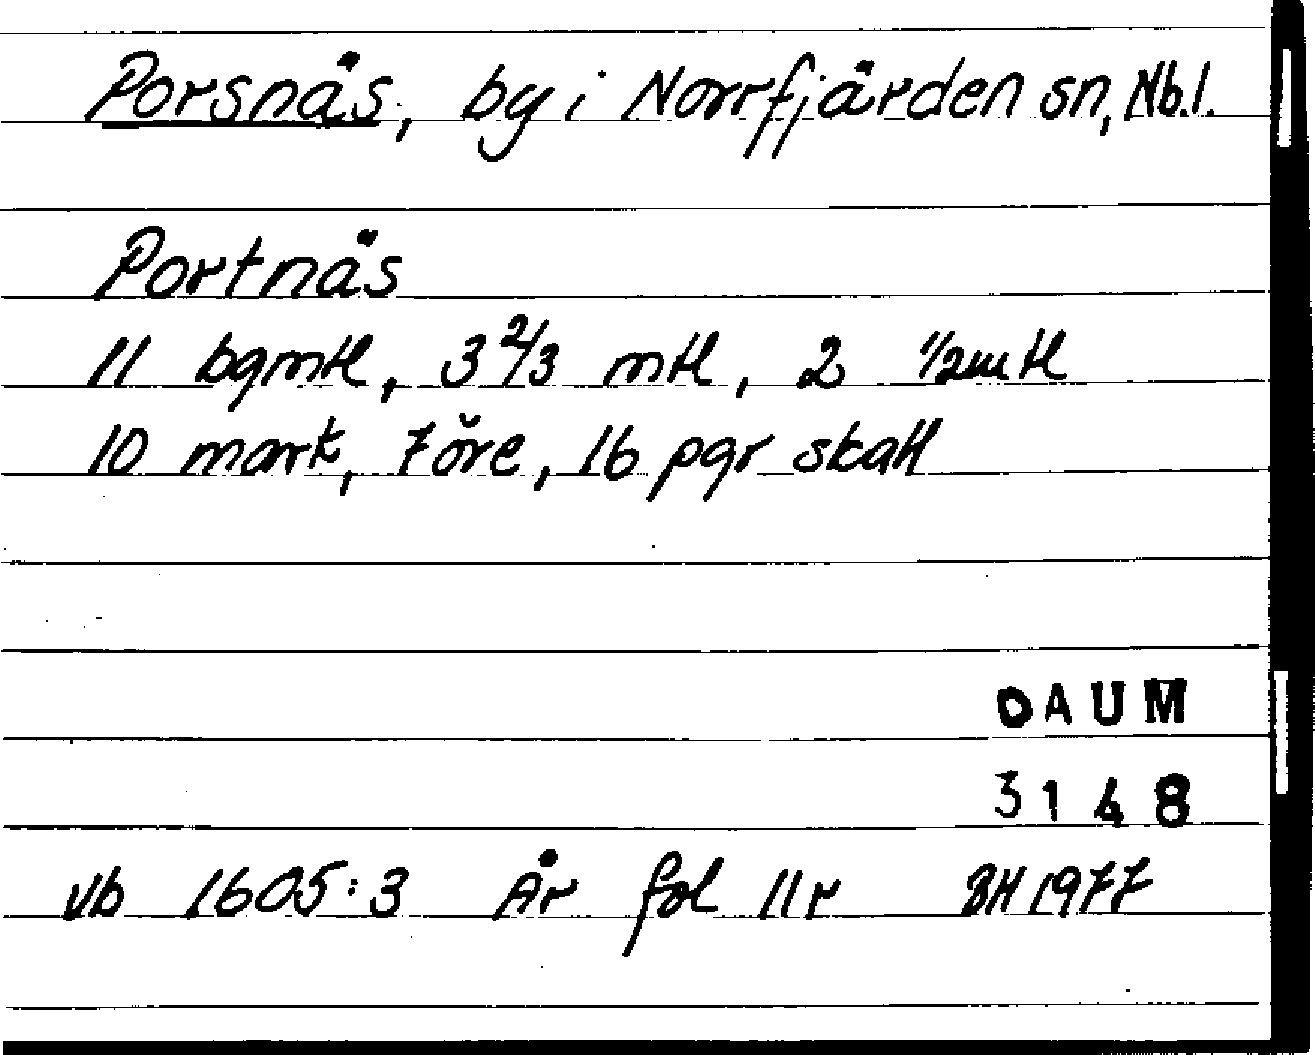 Porsnäs, by i Norrfjärden sn, Nb.l.
Portnäs
11 bgmtl, 3 2/3 mtl, 2 1/2 mtl
10 mark, 7 öre, 16 pgr skatt
DAUM
3148
Vb 1605:3 År fol 11r BH 1977